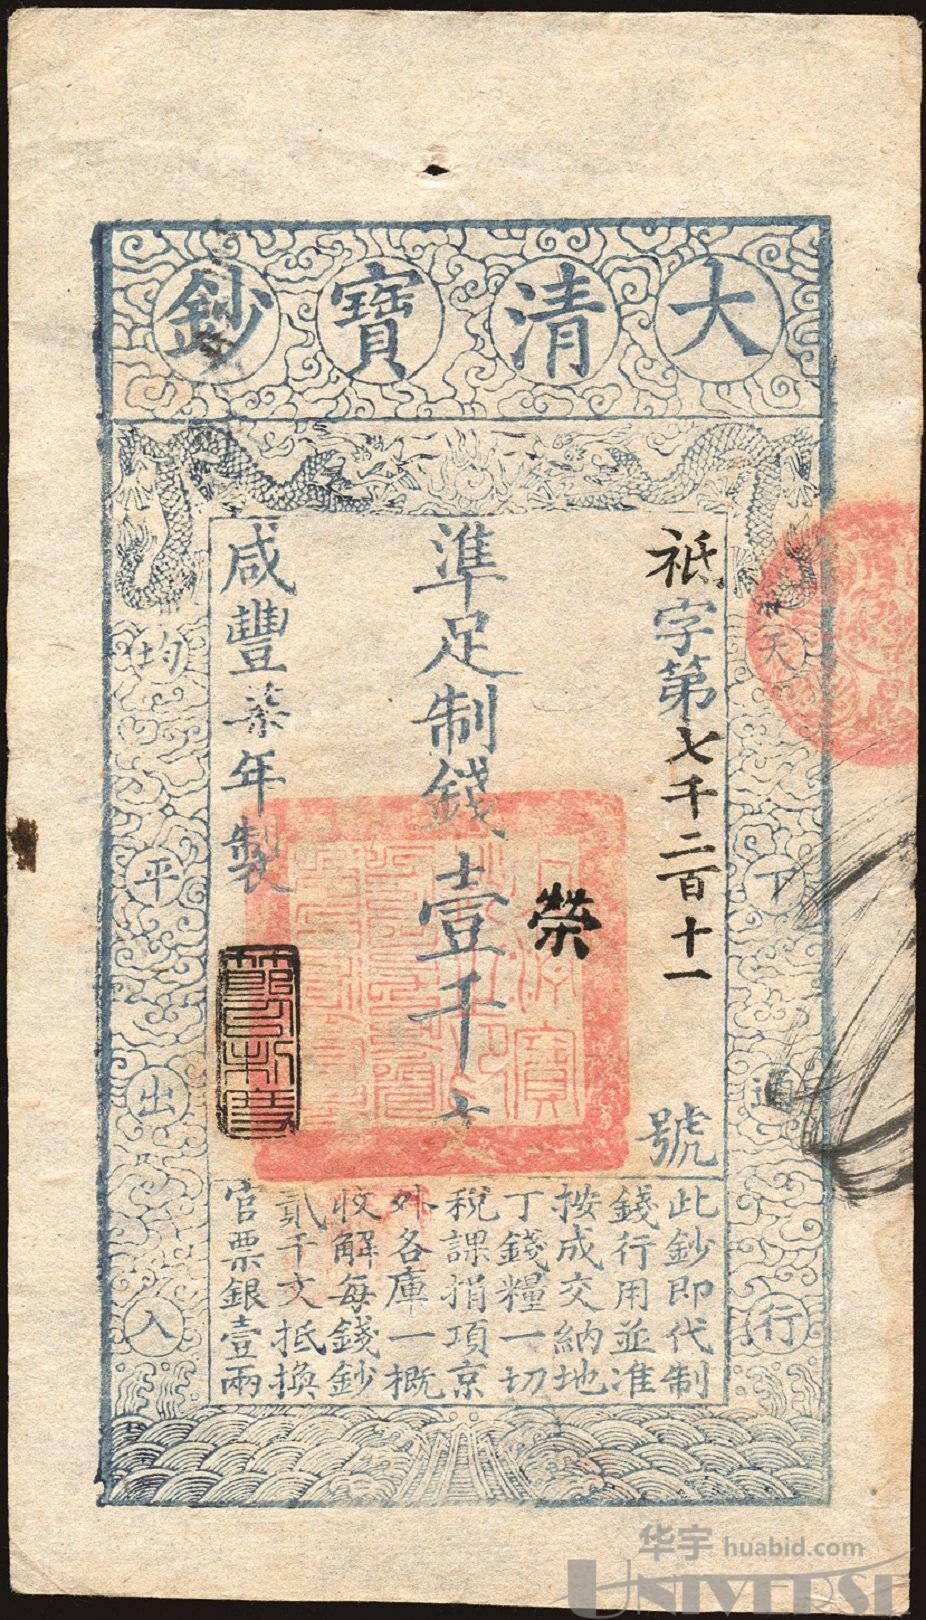 大清寶鈔
祗字第七千二百十一號
準足制錢壹千文
榮
咸豐柒年製
天下通行
均平出入
此鈔即代制
錢行用並准
按成交納地
丁錢糧一切
稅課捐項京
外各庫一概
收解每錢鈔
貳千文抵換
官票銀壹兩
华宇 huabid.com
UNIVERS